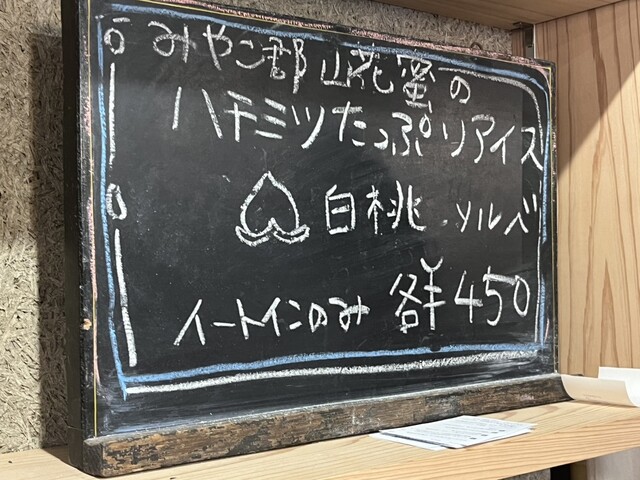 みやこ郡 山花蜜の
ハチミツたっぷりアイス
白桃 ソルベ
イートインのみ 各¥450